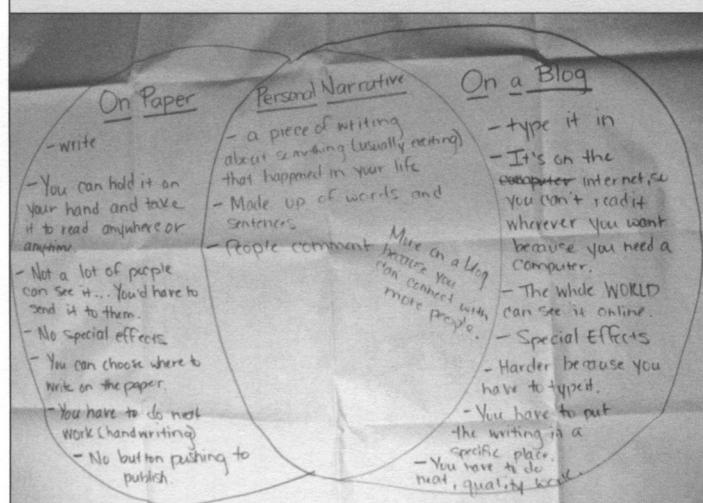 On Paper
- write
- You can hold it on
your hand and take
it to read anywhere or
anytime.
- Not a lot of people
can see it... You'd have to
send it to them.
- No special effects
- You can choose where to
write on the paper.
- You have to do neat
work (handwriting)
- No button pushing to
publish.
Personal Narrative
- a piece of writing
about something (usually exciting)
that happened in your life
- Made up of words and
sentences
- People comment
More on a blog
because you
can connect with
more people.
On a Blog
- type it in
- It's on the
computer internet, so
you can't read it
wherever you want
because you need a
computer.
- The whole WORLD
can see it online.
- Special Effects
- Harder because you
have to type it.
- You have to put
the writing in a
specific place.
- You have to do
neat, quality work.